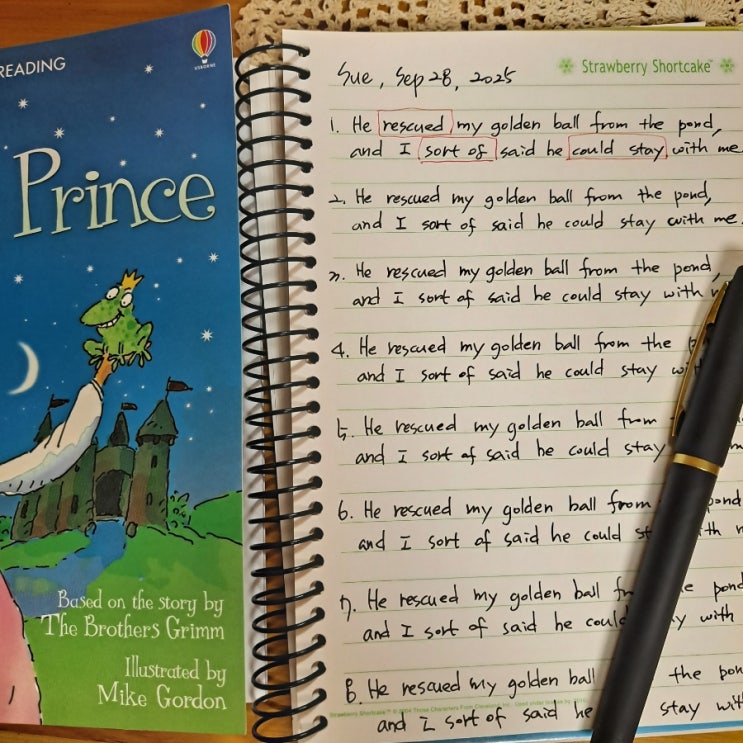 READING
USBORNE
Prince
Based on the story by
The Brothers Grimm
Illustrated by
Mike Gordon
Strawberry Shortcake™
Sue, Sep 28, 2025
1. He rescued my golden ball from the pond,
and I sort of said he could stay with me.
2. He rescued my golden ball from the pond,
and I sort of said he could stay with me.
3. He rescued my golden ball from the pond,
and I sort of said he could stay with
4. He rescued my golden ball from the
and I sort of said he could stay
5. He rescued my golden ball from
and I sort of said he could stay
6. He rescued my golden ball from pond
and I sort of said he could
7. He rescued my golden ball pond
and I sort of said he could with
8. He rescued my golden ball the
and I sort of said he stay